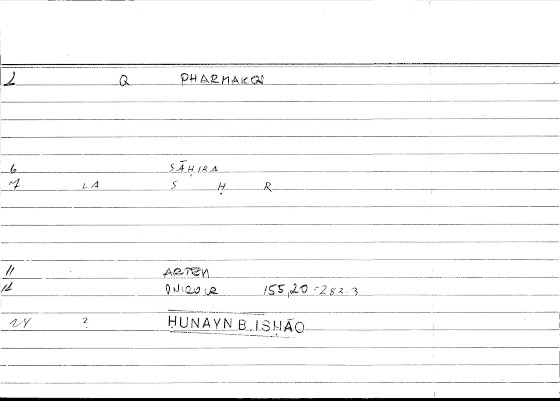 2 Q PHARMAKOI
6 SĀḤIRA
7 LA S Ḥ R
11 ARTEM
12 ONIROCR 155,20 = 282.3
24 ? ḤUNAYN B. ISḤĀQ